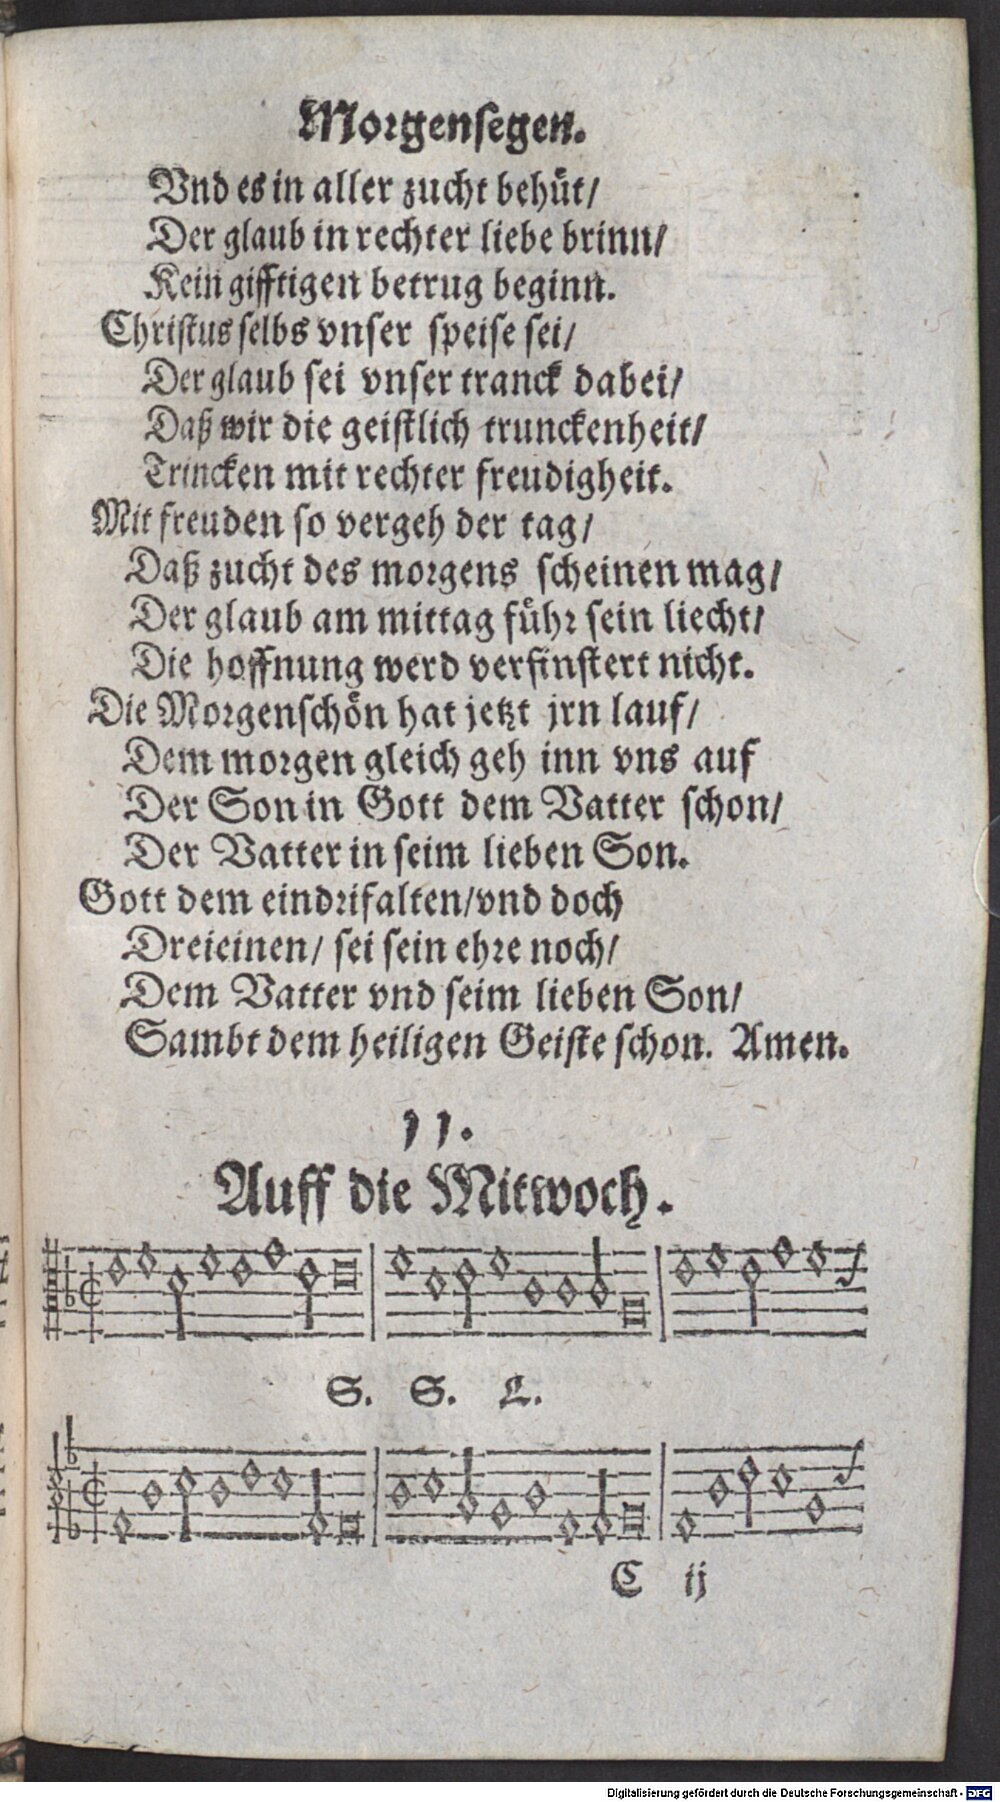 Morgensegen.
Vnd es in aller zucht behuͤt/
Der glaub in rechter liebe brinn/
Kein gifftigen betrug beginn.
Christus selbs vnser speise sei/
Der glaub sei vnser tranck dabei/
Daß wir die geistlich trunckenheit/
Trincken mit rechter freudigheit.
Mit freuden so vergeh der tag/
Daß zucht des morgens scheinen mag/
Der glaub am mittag fuͤhr sein liecht/
Die hoffnung werd verfinstert nicht.
Die Morgenschoͤn hat jetzt jrn lauf/
Dem morgen gleich geh inn vns auf
Der Son in Gott dem Vatter schon/
Der Vatter in seim lieben Son.
Gott dem eindrifalten/vnd doch
Dreieinen/ sei sein ehre noch/
Dem Vatter vnd seim lieben Son/
Sambt dem heiligen Geiste schon. Amen.
11.
Auff die Mitwoch.
S. S. L.
C ij
Digitalisierung gefördert durch die Deutsche Forschungsgemeinschaft - DFG